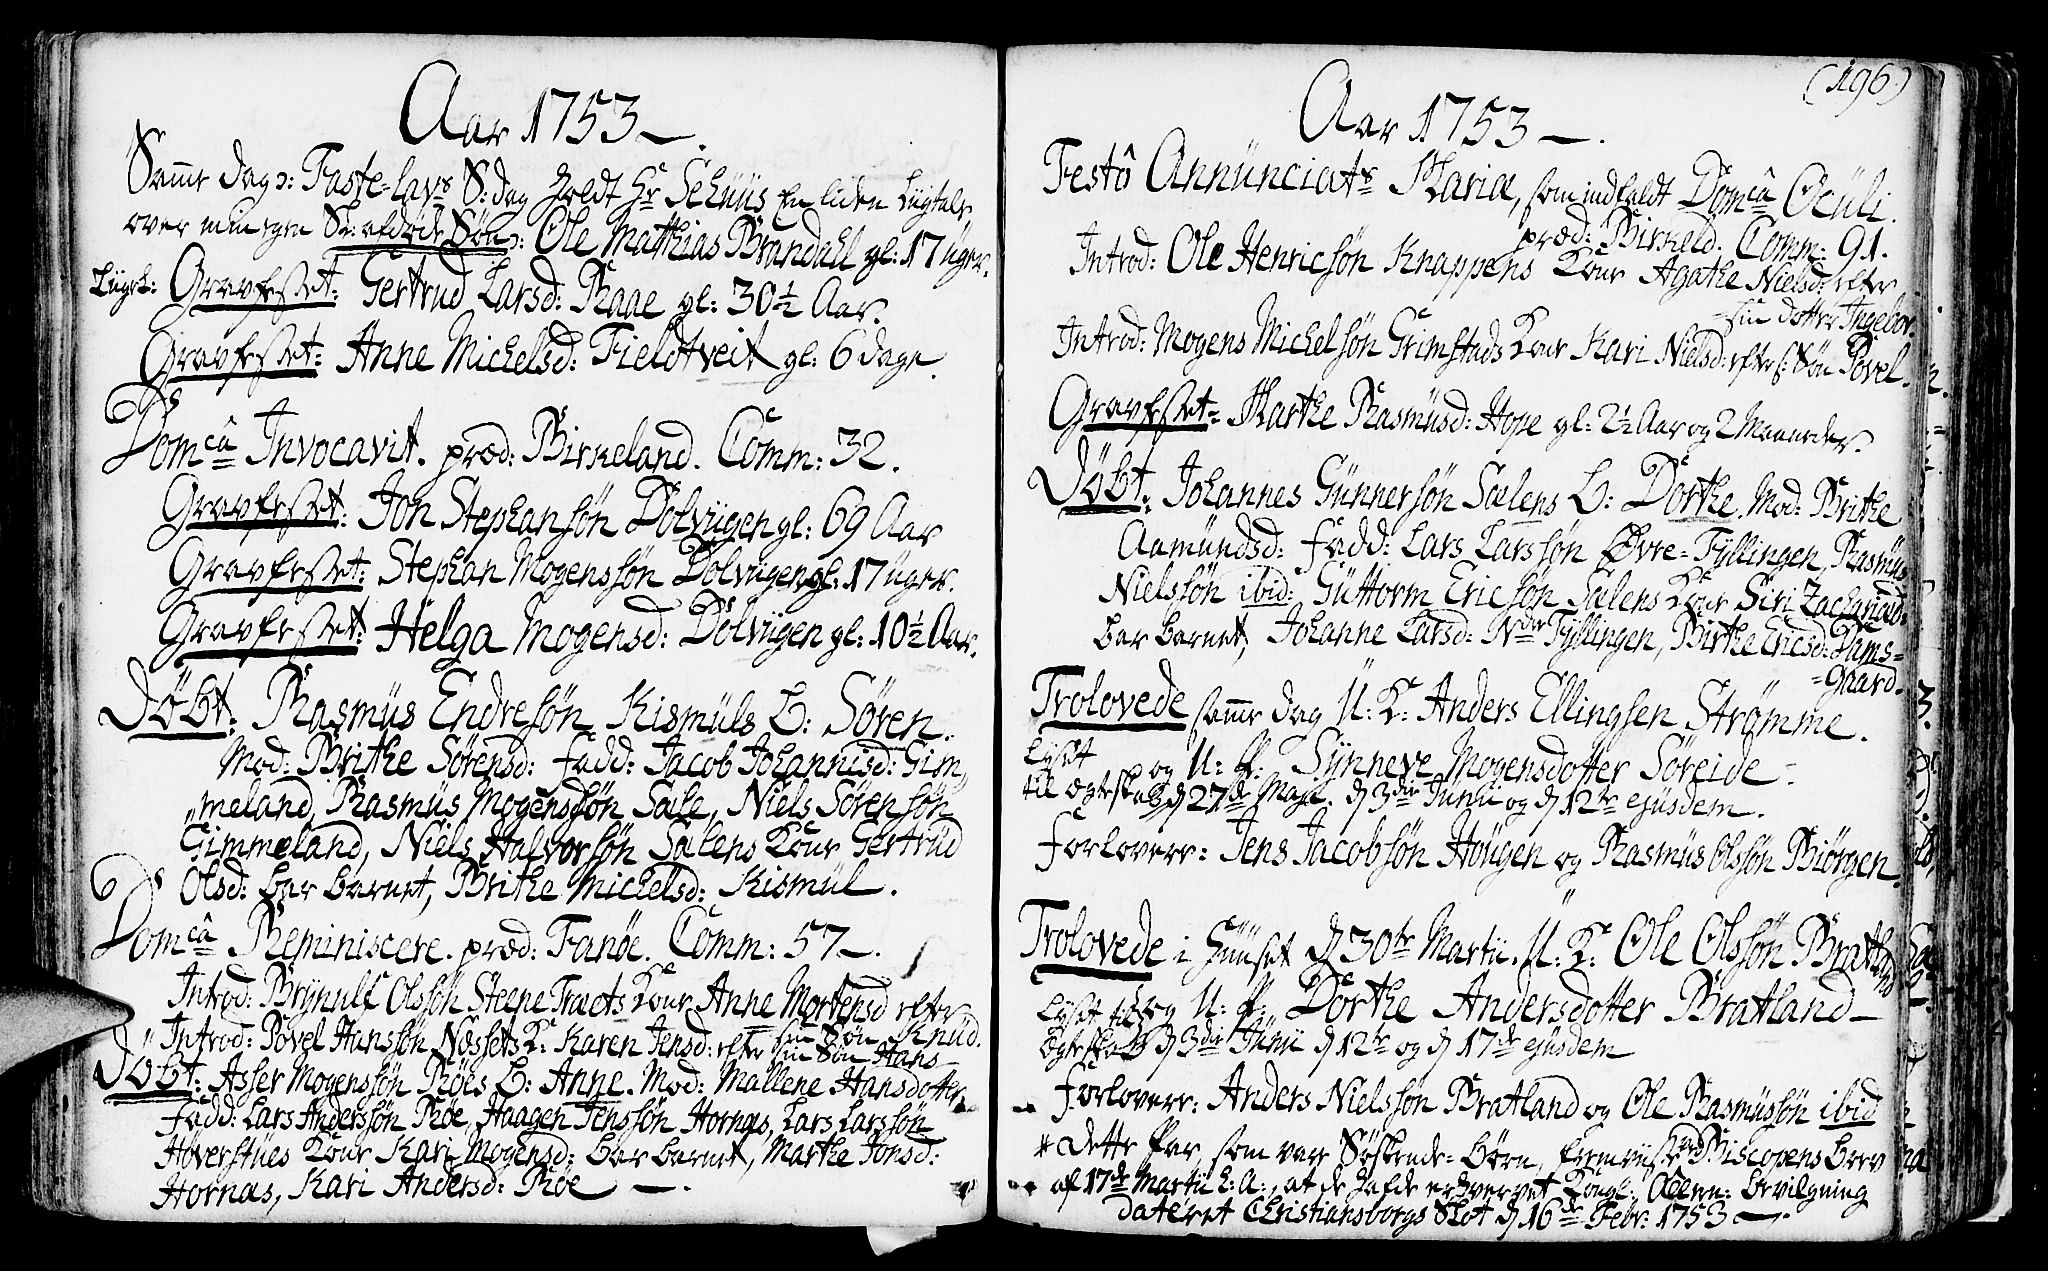 Aar 1753 —.
Samme dag ɔ: Faste-lavs S:dag holdt Hr Schüüs En liden Liigtale
over min egen Sl: afdøde Søn ɔ: Ole Matthias Brandahl gl: 17 Uger.
Liigpr: Gravfestet: Gertrud Larsd: Raae gl: 30½ Aar.
Gravfestet: Anne Michelsd: Fieldtveit gl: 6 dage.
Domcâ Invocavit. præd: Birkeland. Comm: 32.
Gravfestet: Jon Stephansøn Dolviigen gl: 69 Aar
Gravfestet: Stephan Mogenssøn Dolviigen gl: 17 Uger.
Gravfestet: Helga Mogensd: Dolviigen gl: 10½ Aar.
Döbt: Rasmüs Endresøn Kismüls B: Søren.
Mod: Brithe Sørensd: fadd: Jacob Johannisd: Gim„
„meland, Rasmüs Mogenssøn Sæle, Niels Sørensøn
Gimmeland, Niels Halvorsøn Sælens Kone Gertrüd
Olsd: bar barnet, Brithe Michelsd: Kismül.
Domcâ Reminiscere. præd: Fanøe. Comm: 57 —.
Introd: Brÿnulf Olssön Steene Træets Kone Anne Mortensd efter
sin Søn Knüd.
Introd: Povel Hanssøn Næssets K: Karen Jensd: efter sin Søn Hans —
Döbt: Asser Mogenssøn Röes B: Anne. Mod: Mallene Hansdotter
fadd: Lars Anderssøn Röe, Haagen Jenssøn Hornæs, Lars Larssøn
Hoverstües Kone Kari Mogensd: bar barnet, Marthe Jonsd:
Hornæs, Kari Andersd: Röe —.
(196.)
Aar 1753 —.
Festô Annünciats Mariæ, som indfaldt Domcâ Ocüli.
præd: Birkeld. Comm: 91.
Introd: Ole Henricsøn Knappens Kone Agathe Nielsd: efter
sin dotter Ingebor.
Introd: Mogens Michelsøn Grimstads Kone Kari Nielsd: efter s: Søn Povel.
Gravfestet: Marthe Rasmüsd: Hope gl: 2½ Aar og 2 Maaneder.
Döbt: Johannes Günnersøn Sælens B: Dorthe. Mod: Brithe
Aamündsd: fadd: Lars Larssøn Øvre-Tÿllingen, Rasmüs
Nielssøn ibid: Güttorm Ericsøn Sælens Kone Siri Zachariæd:
bar barnet, Johanne Larsd: Ndre Tÿllingen, Birthe Ericsd: Dams=
=Gaard.
Trolovede samme dag U: K: Anders Ellingsen Strømme.
Lyset og U: P: Sÿnneve Mogensdotter Søreide —
til Ægteskab d 27de Maji. d 3die Junii og d 12te ejüsdem.
Forlovere: Jens Jacobsøn Hougen og Rasmüs Olssøn Biörgen.
Trolovede i Huuset d 30te Martii. U: K: Ole Olssøn Bratland
Lyset til og U: P: Dorthe Andersdotter Bratland —
Ægteskab d 3die Jünii d 12te og d 17de ejüsdem
Forlovere: Anders Nielssøn Bratland og Ole Rasmüssøn ibid
* dette Par, som vare Söskende-börn, fremviiste Biscopens brev
af 17de Martii h: A:, at de hafde erhvervet Kongl: Allern: bevilgning
dateret Christiansborgs Slot d 16de Febr: 1753 —.